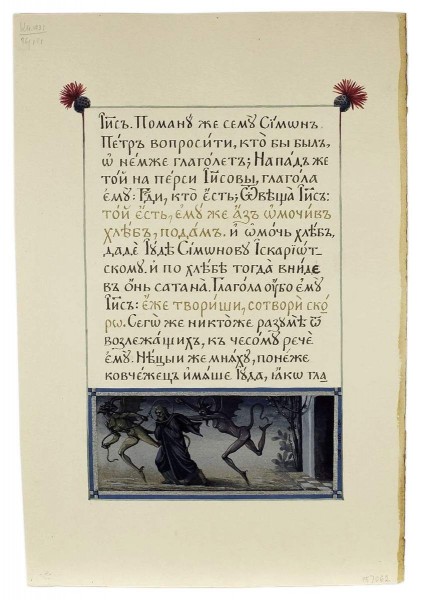 І҆и҃съ. Поманꙋ̀ же семꙋ̀ Сі́мѡнъ
Пе́тръ вопроси́ти, кто̀ бы бы́лъ,
ѡ҆ не́мже глаго́летъ; Напа́дъ же
то́й на пе́рси І҆и҃совы, глаго́ла
є҆мꙋ̀: Гдⷭ҇и, кто̀ є҆́сть; Ѿвѣща̀ І҆и҃съ:
то́й є҆́сть, є҆мꙋ́ же а҆́зъ ѡ҆мочи́въ
хлѣ́бъ, пода́мъ. и҆ ѡ҆мо́чь хлѣ́бъ,
дадѐ І҆ꙋ́дѣ Сі́мѡнову І҆скарїѡ́т-
скомꙋ. и҆ по хлѣ́бѣ тогда̀ вни́де
въ ѻ҆́нь сатана̀. Глаго́ла ᲂу҆̀бо є҆мꙋ̀
І҆и҃съ: є҆́же твори́ши, сотворѝ ско́-
рѡ. Сегѡ́ же никто́же разꙋмѣ̀ ѿ
возлежа́щихъ, къ чесомꙋ̀ речѐ
є҆мꙋ̀. Нѣ́цыи же мнѧ́хꙋ, поне́же
ковче́жецъ и҆мѧ́ше І҆ꙋ́да, ꙗ҆́кѡ гла